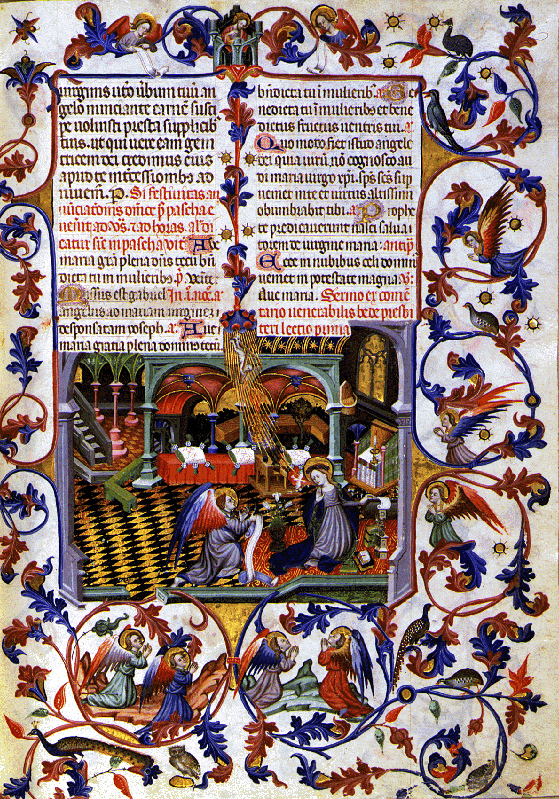 uirginis utero ubum tuū an
gelo nunciante carnē susci
pe uoluisti presta supplicib
tuis. ut qui uere eam geni
tricem dei credimus eius
apud te intcessionibs ad
iuuem̄. P. Si festiuitas an
nūciacionis dnice p pascha e
uenit ad Vs. ad horas. Al di
catur sic in pascha Aue
maria gra plena dns tecū bn
dicta tu in mulieribs. P. Venite.
Missus est gabriel In. i. noct. a.
angelus ad mariam uirginez
desponsatam ioseph. a. Aue
maria gratia plena dominus tecū
bn̄dicta tu ī mulieribs. a. Be
nedicta tu ī mulieribs et bene
dictus fructus uentris tui. a.
Quo modo fiet istud angele
dei quia uirū nō cognosco au
di maria uirgo xpī. sps scs sup
ueniet in te et uirtus altissimi
obumbrabit tibi. a. Prophe
te predicauerunt nasci saluat
orem de uirgine maria. antiph.
Ecce in nubibus celi dominus
ueniet in potestate magna. V.
Aue maria. Sermo ex com̄e
tario uenerabilis bede presbi
teri lectio prima